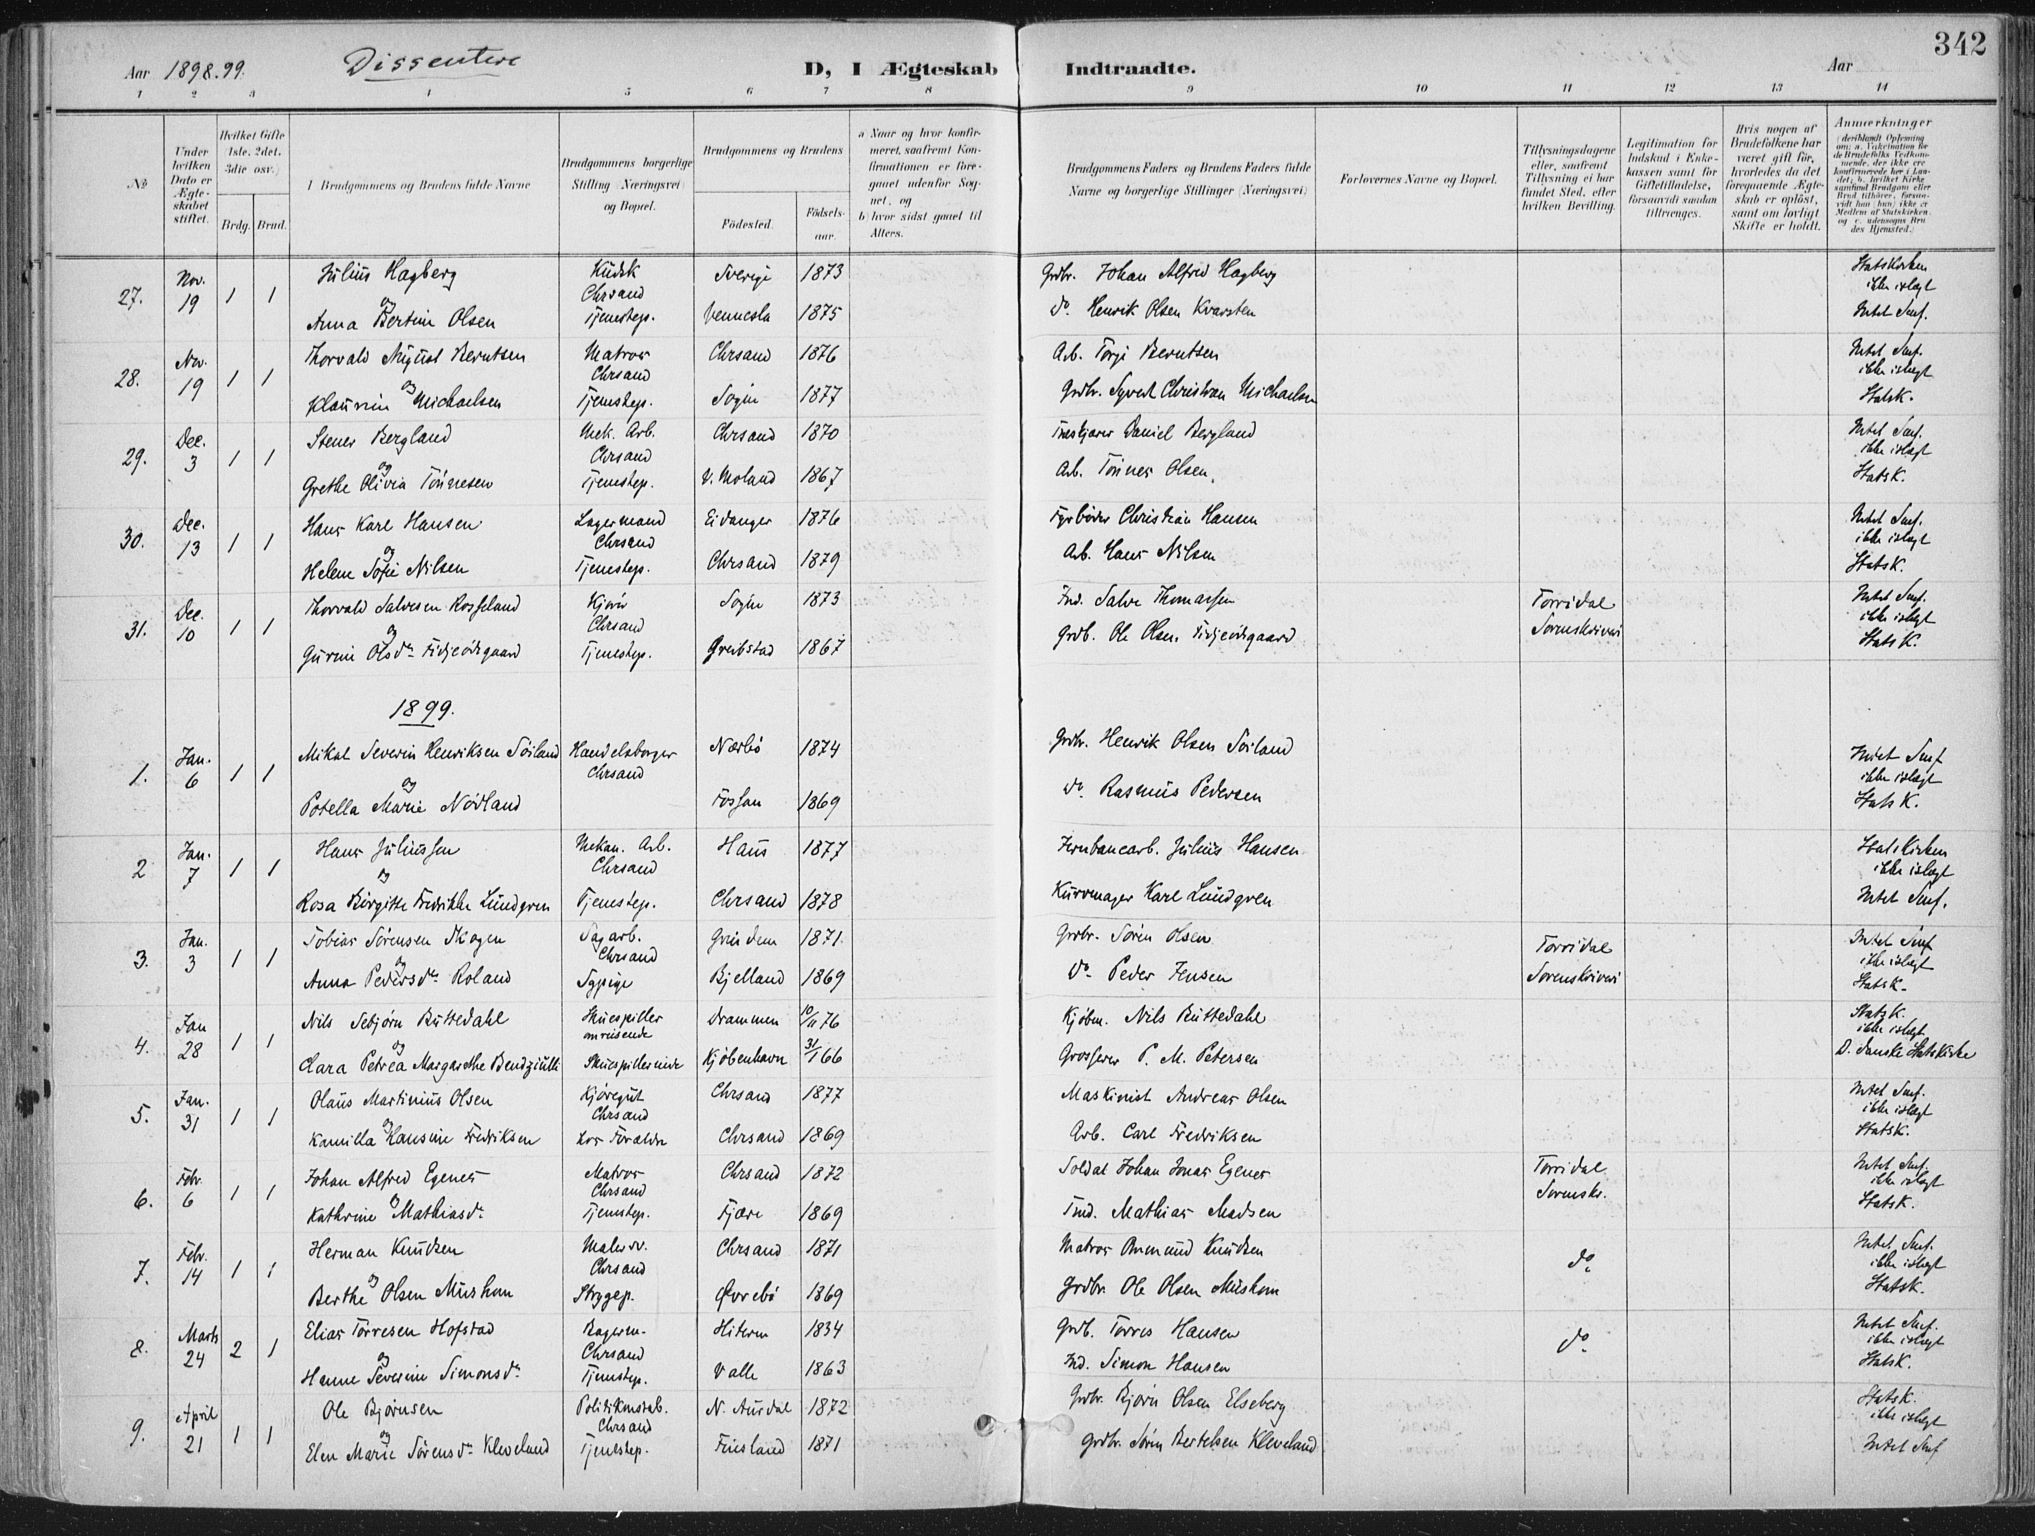 342
Aar 1898.99.
Dissentere
D, I Ægteskab Indtraadte.
Aar
1 2 3 4 5 6 7 8 9 10 11 12 13 14
No
Under hvilken Dato er Ægteskabet stiftet.
Hvilket Gifte (1ste, 2det, 3die osv.)
Brdg. Brud.
Brudgommens og Brudens fulde Navne
Brudgommens borgerlige Stilling (Næringsvei) og Bopæl.
Brudgommens og Brudens
Fødested.
Fødselsaar.
a Naar og hvor konfirmeret, saafremt Konfirmationen er foregaaet udenfor Sognet, og
b) hvor sidst gaaet til Alters.
Brudgommens Faders og Brudens Faders fulde Navne og borgerlige Stillinger (Næringsvei)
Forlovernes Navne og Bopæl.
Tillysningsdagene eller, saafremt Tillysning ei har fundet Sted, efter hvilken Bevilling.
Legitimation for Indskud i Enkekassen samt for Giftetilladelse, forsaavidt saadan tiltrænges.
Hvis nogen af Brudefolkene har været gift før, hvorledes da det foregaaende Ægteskab er opløst, samt om lovligt Skifte er holdt.
Anmerkninger
27. Nov. 19 1 1 Julius Hagberg Kudsk Chrsand Sverige 1873 Grdbr. Johan Alfred Hagberg Statskirken ikke islegt
og Anna Bertine Olsen Tjenestep. Vennesla 1875 do Henrik Olsen Kvarsten Intet Smf.
28. Nov. 19 1 1 Thorvald August Berntsen Matros Chrsand Chrsand 1876 Arb. Torje Berntsen Intet Smf. ikke islegt
og Michaelsen Tjenestep. Søgne 1877 Grdbr. Syvert Christian Michaelsen StatsK.
29. Dec. 3 1 1 Stener Bergland Mek. Arb. Chrsand Chrsand 1870 Daniel Bergland Intet Smf. ikke islegt
og Grethe Olivia Tönnesen Tjenestep. V. Moland 1867 Arb. Tönnes Olsen. StatsK.
30. Dec. 13 1 1 Hans Karl Hansen Lagermand Chrsand Eidanger 1876 Fyrbøder Christian Hansen Intet Smf. ikke islegt
og Helene Sofie Nilsen Tjenestep. Chrsand 1879 Arb. Hans Nilsen StatsK.
31. Dec. 10 1 1 Thorvald Salvesen Rosseland Chrsand Søgne 1873 Ind. Salve Thomassen Torridal Sorenskriveri Intet Smf. ikke islegt
og Olsdr Tjenestep. Greibstad 1867 Grdb. Ole Olsen StatsK.
1899.
1. Jan. 6 1 1 Mikal Severin Henriksen Söiland Handelsborger Chrsand Nærbö 1874 Grdbr. Henrik Olsen Söiland Intet Smf ikke islegt
og Potella Marie Nödland Fossan 1869 do Rasmus Pedersen StatsK.
2 Jan. 7 1 1 Hans Juliussen Mekan. Arb. Chrsand Haus 1877 Jernbanearb. Julius Hansen Statskirken ikke islegt
og Rosa Birgitte Fredrikke Lundgren Tjenestep. Chrsand 1878 Kurvmager Karl Lundgren Intet Smf.
3. Jan. 3 1 1 Tobias Sørensen Skogen Sagarb. Chrsand Grindem 1871. Grdbr. Sørin Olsen Torridal Sorenskriveri Intet Smf ikke islegt
og Anna Pedersdr Roland Sypige Bjelland 1869 do Peder Jensen StatsK.
4. Jan 28 1 1 Nils Sebjørn Buttedahl Skuespiller omreisende Drammen 10/11 76 Kjøbm. Nils Buttedahl StatsK. ikke islegt
og Clara Petrea Margarethe Skuespillerinde Kjöbenhavn 31/1 66 Grosserer P. M. Petersen D. danske Statskirke
5. Jan. 31 1 1 Olaus Martinius Olsen Kjöregut Chrsand Chrsand 1877 Maskinist Andreas Olsen Intet Smf. ikke islegt
og Kamilla Hansine Fredriksen hos Foreldre Chrsand 1869 Arb. Carl Fredriksen StatsK.
6. Febr. 6 1 1 Johan Alfred Egenes Matros Chrsand Chrsand 1872 Soldat Johan Jonas Egenes Torridal Sorenskr. Intet Smf. ikke islegt
og Kathrine Mathiasdr Tjenestep. Fjære 1869 Mathias Madsen StatsK.
7. Febr. 14 1 1 Herman Knudsen Malersv. Chrsand Chrsand 1871 Matros Knudsen do Intet Smf. ikke islegt
og Berthe Olsen Mushom Strygep. Øvrebö 1869 Grdbr. Ole Olsen Mushom StatsK.
8. Marts 24 2 1 Elias Torresen Hofstad Bagerm. Chrsand Hiterø 1834 Grdb. Torres Hansen do Intet Smf. ikke islegt
og Hanne Severine Simonsdr Tjenestep. Valle 1863 Ind. Simon Hansen StatsK.
9. April 21 1 1 Ole Bjørnsen Politikonstab. Chrsand N. Aurdal 1872 Grdbr. Bjørn Olsen Elseberg StatsK. ikke islegt
og Elen Marie Sörensdr Kleveland Tjenestep. Finsland 1871 Grdbr. Sørin Bertelsen Kleveland Intet Smf